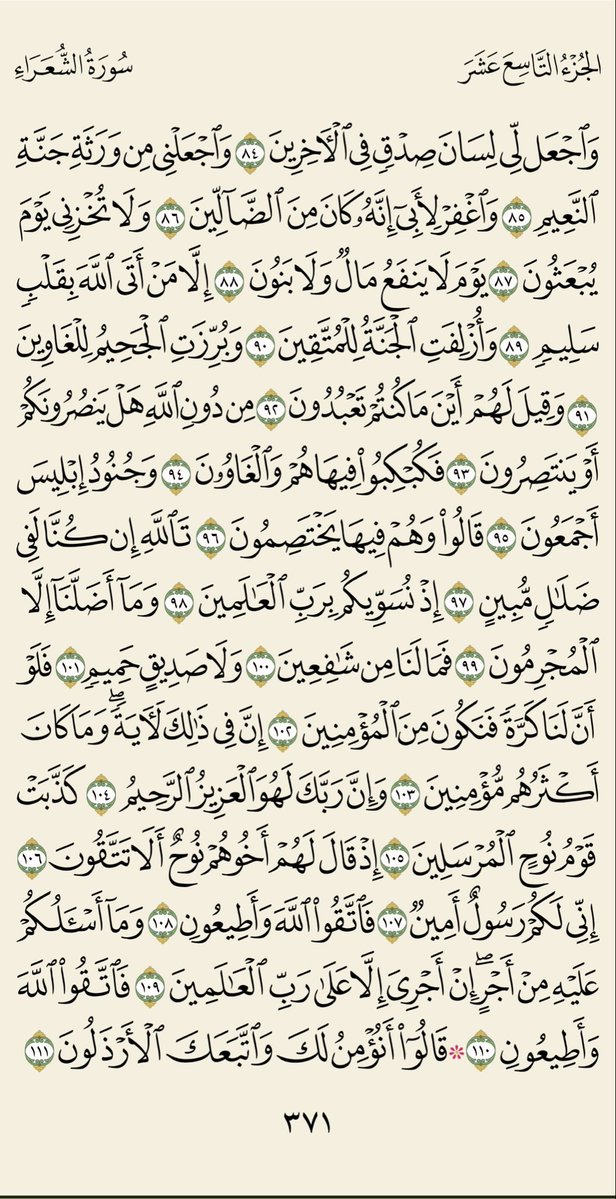 الجُزْءُ التَّاسِعَ عَشَرَ سُورَةُ الشُّعَرَاءِ
وَٱجۡعَل لِّي لِسَانَ صِدۡقٖ فِي ٱلۡأٓخِرِينَ ٨٤ وَٱجۡعَلۡنِي مِن وَرَثَةِ جَنَّةِ
ٱلنَّعِيمِ ٨٥ وَٱغۡفِرۡ لِأَبِيٓ إِنَّهُۥ كَانَ مِنَ ٱلضَّآلِّينَ ٨٦ وَلَا تُخۡزِنِي يَوۡمَ
يُبۡعَثُونَ ٨٧ يَوۡمَ لَا يَنفَعُ مَالٞ وَلَا بَنُونَ ٨٨ إِلَّا مَنۡ أَتَى ٱللَّهَ بِقَلۡبٖ
سَلِيمٖ ٨٩ وَأُزۡلِفَتِ ٱلۡجَنَّةُ لِلۡمُتَّقِينَ ٩٠ وَبُرِّزَتِ ٱلۡجَحِيمُ لِلۡغَاوِينَ
٩١ وَقِيلَ لَهُمۡ أَيۡنَ مَا كُنتُمۡ تَعۡبُدُونَ ٩٢ مِن دُونِ ٱللَّهِ هَلۡ يَنصُرُونَكُمۡ
أَوۡ يَنتَصِرُونَ ٩٣ فَكُبۡكِبُواْ فِيهَا هُمۡ وَٱلۡغَاوُۥنَ ٩٤ وَجُنُودُ إِبۡلِيسَ
أَجۡمَعُونَ ٩٥ قَالُواْ وَهُمۡ فِيهَا يَخۡتَصِمُونَ ٩٦ تَٱللَّهِ إِن كُنَّا لَفِي
ضَلَٰلٖ مُّبِينٍ ٩٧ إِذۡ نُسَوِّيكُم بِرَبِّ ٱلۡعَٰلَمِينَ ٩٨ وَمَآ أَضَلَّنَآ إِلَّا
ٱلۡمُجۡرِمُونَ ٩٩ فَمَا لَنَا مِن شَٰفِعِينَ ١٠٠ وَلَا صَدِيقٍ حَمِيمٖ ١٠١ فَلَوۡ
أَنَّ لَنَا كَرَّةٗ فَنَكُونَ مِنَ ٱلۡمُؤۡمِنِينَ ١٠٢ إِنَّ فِي ذَٰلِكَ لَأٓيَةٗۖ وَمَا كَانَ
أَكۡثَرُهُم مُّؤۡمِنِينَ ١٠٣ وَإِنَّ رَبَّكَ لَهُوَ ٱلۡعَزِيزُ ٱلرَّحِيمُ ١٠٤ كَذَّبَتۡ
قَوۡمُ نُوحٍ ٱلۡمُرۡسَلِينَ ١٠٥ إِذۡ قَالَ لَهُمۡ أَخُوهُمۡ نُوحٌ أَلَا تَتَّقُونَ ١٠٦
إِنِّي لَكُمۡ رَسُولٌ أَمِينٞ ١٠٧ فَٱتَّقُواْ ٱللَّهَ وَأَطِيعُونِ ١٠٨ وَمَآ أَسۡـَٔلُكُمۡ
عَلَيۡهِ مِنۡ أَجۡرٍۖ إِنۡ أَجۡرِيَ إِلَّا عَلَىٰ رَبِّ ٱلۡعَٰلَمِينَ ١٠٩ فَٱتَّقُواْ ٱللَّهَ
وَأَطِيعُونِ ١١٠ ۞ قَالُوٓاْ أَنُؤۡمِنُ لَكَ وَٱتَّبَعَكَ ٱلۡأَرۡذَلُونَ ١١١
٣٧١